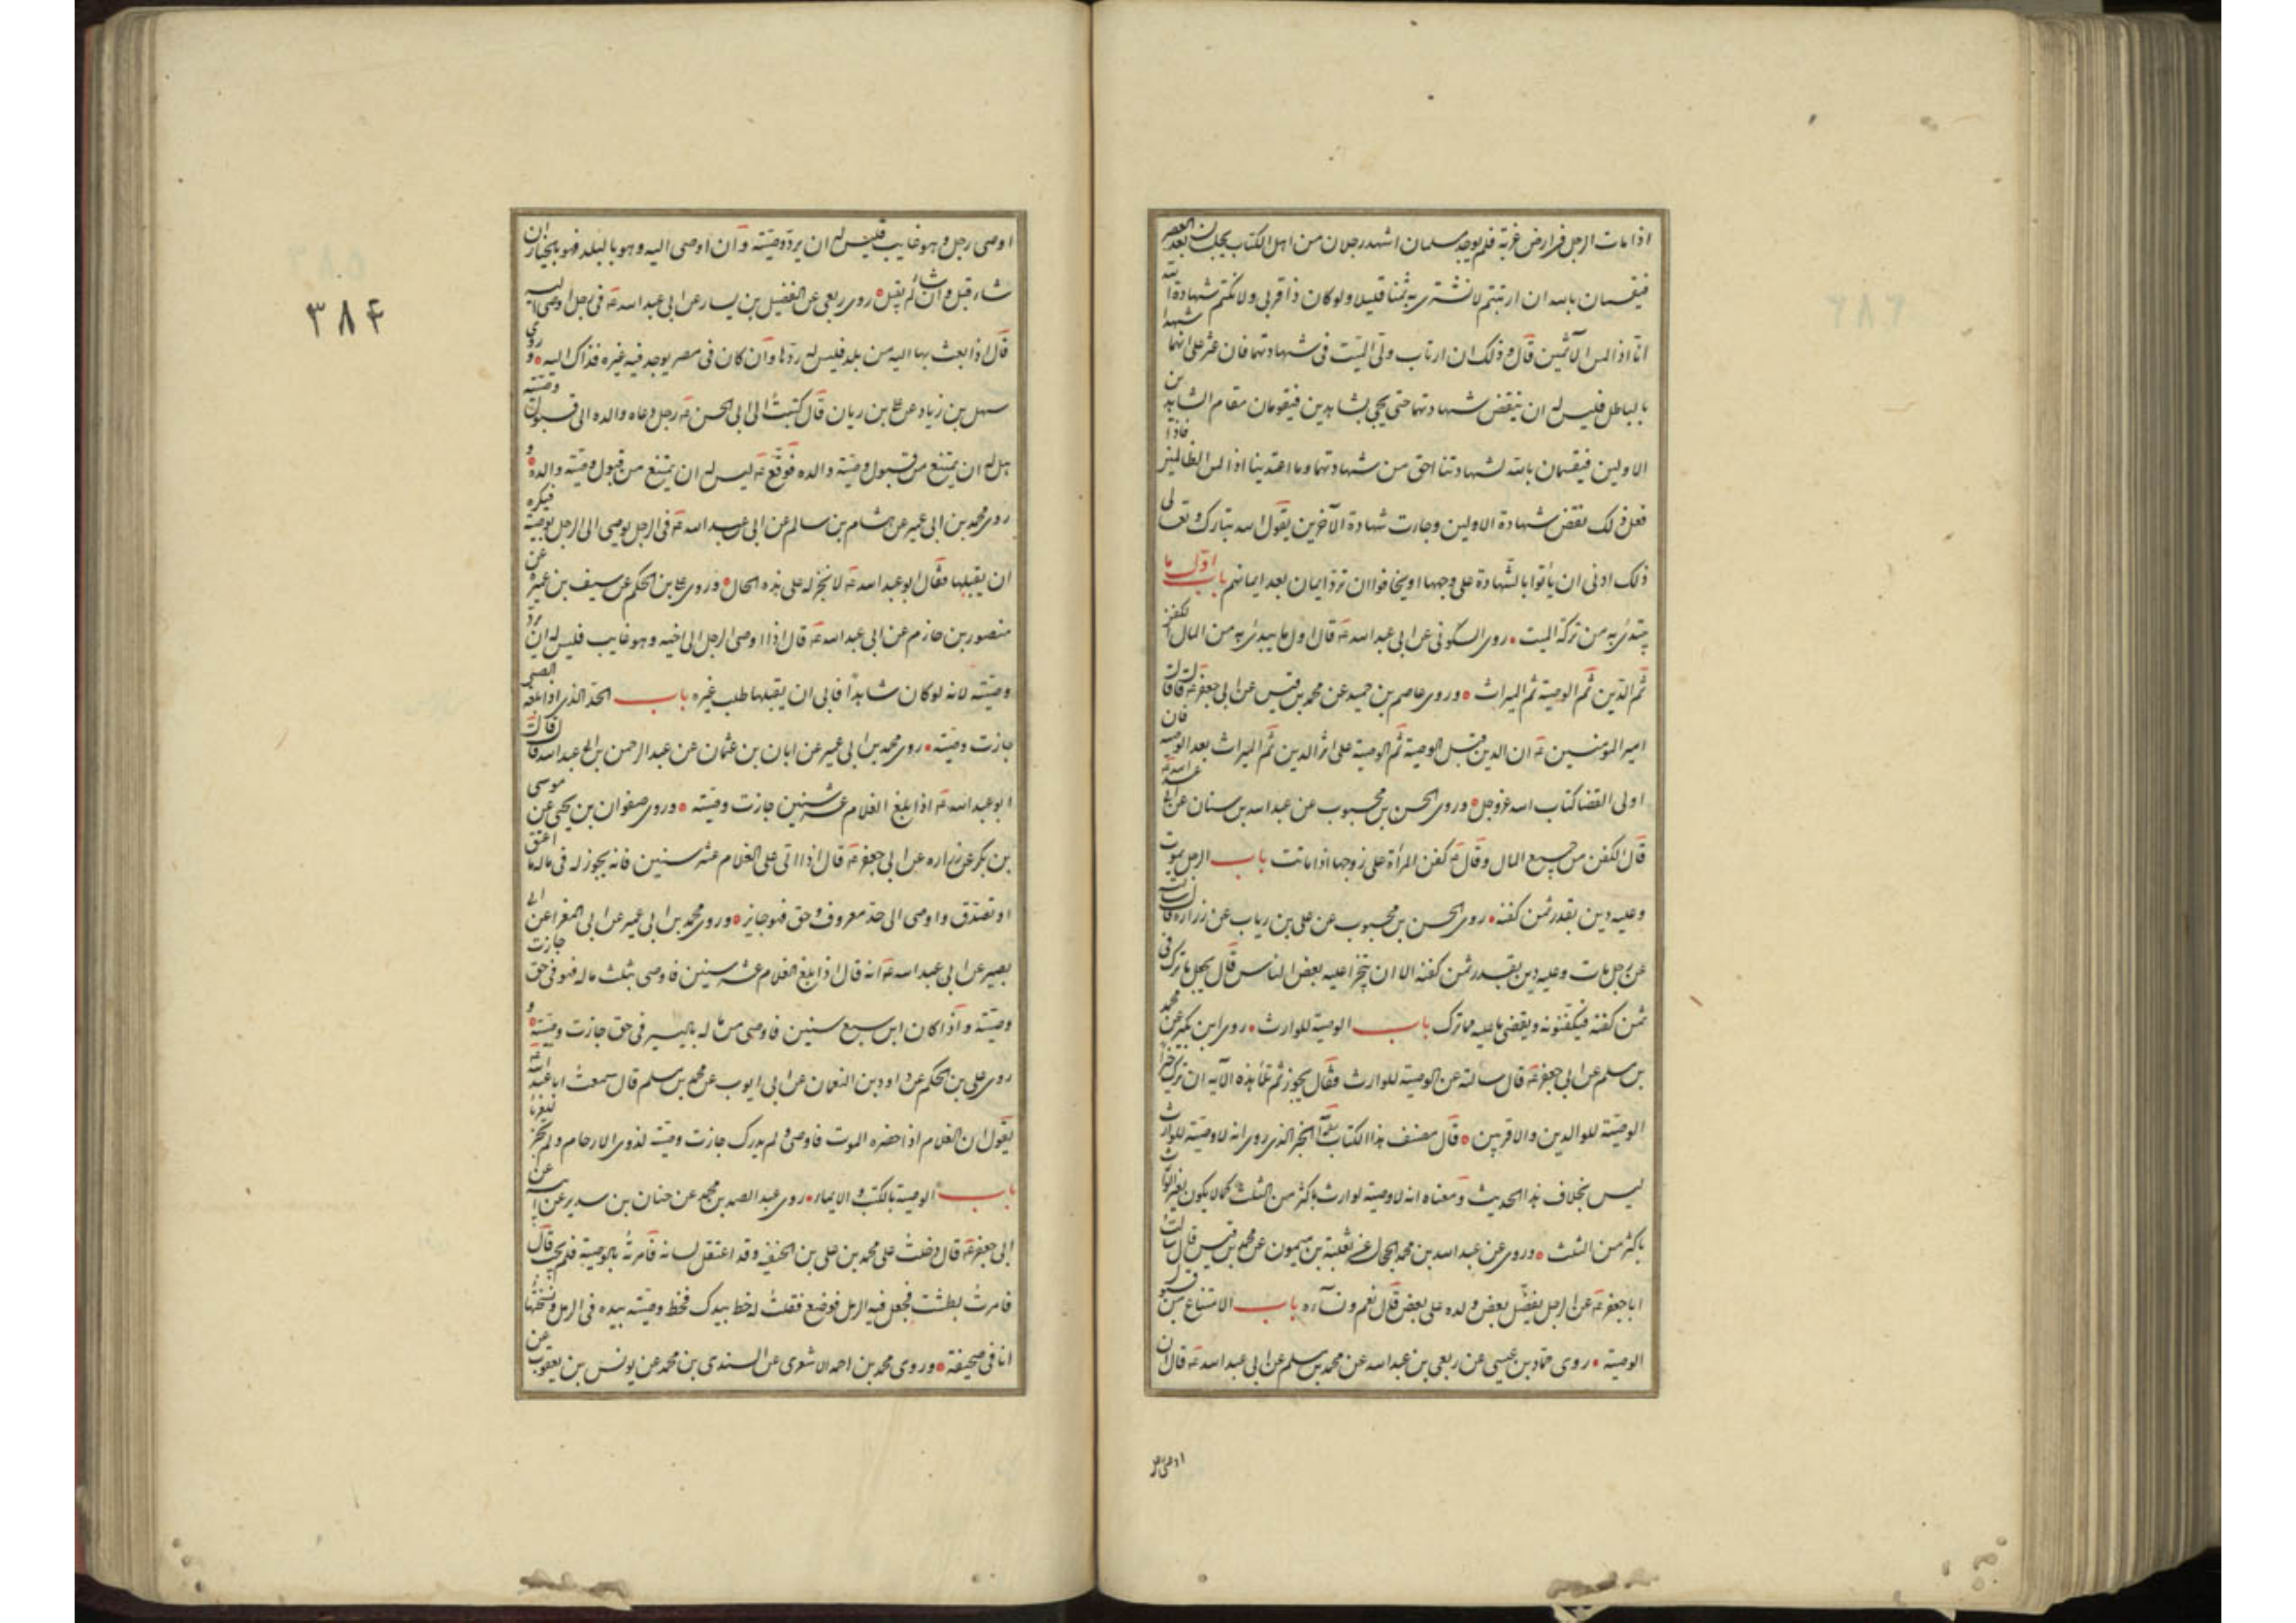 اذا مات الرجل في ارض غربة فلم يوجد مسلمان اشهد رجلان من اهل الكتاب يحلفان بعد العصر
فيقسمان بالله ان ارتبتم لا نشتري به ثمنا قليلا ولو كان ذا قربى ولا نكتم شهادة الله
انا اذا لمن الآثمين قال وذلك ان ارتاب ولي الميت في شهادتهما فان عثر على انهما شهدا
بالباطل فليس له ان ينقض شهادتهما حتى يجئ بشاهدين فيقومان مقام الشاهدين
الاولين فيقسمان بالله لشهادتنا احق من شهادتهما وما اعتدينا انا اذا لمن الظالمين فاذا
فعل ذلك نقض شهادة الاولين وجازت شهادة الآخرين يقول الله تبارك وتعالى
ذلك ادنى ان ياتوا بالشهادة على وجهها او يخافوا ان ترد ايمان بعد ايمانهم باب اول ما
يبتدئ به من تركة الميت روى السكوني عن ابي عبد الله ع قال اول ما يبدئ به من المال الكفن
ثم الدين ثم الوصية ثم الميراث وروى عاصم بن حميد عن محمد بن قيس عن ابي جعفر ع قال قال
امير المؤمنين ع ان الدين قبل الوصية ثم الوصية على اثر الدين ثم الميراث بعد الوصية فان
اولى القضا كتاب الله عز وجل وروى الحسن بن محبوب عن عبد الله بن سنان عن ابي عبد الله ع
قال الكفن من جميع المال وقال ع كفن المرأة على زوجها اذا ماتت باب الرجل يموت
وعليه دين بقدر ثمن كفنه روى الحسن بن محبوب عن علي بن رياب عن زراره قال سالت
عن رجل مات وعليه دين بقدر ثمن كفنه الا ان يتجر عليه بعض الناس قال يجعل ما ترك في
ثمن كفنه فيكفنونه ويقضى ما عليه مما ترك باب الوصية للوارث روى ابن بكير عن محمد
بن مسلم عن ابي جعفر ع قال سالته عن الوصية للوارث فقال يجوز ثم تلا هذه الآية ان ترك خيرا
الوصية للوالدين والاقربين قال مصنف هذا الكتاب الخبر الذي روى انه لا وصية للوارث
ليس بخلاف هذا الحديث ومعناه انه لا وصية لوارث باكثر من الثلث كما لا يكون لغير الوارث
باكثر من الثلث وروى عن عبد الله بن محمد الحجال عن ثعلبة بن ميمون عن محمد بن قيس قال سالت
ابا جعفر ع عن الرجل يفضل بعض ولده على بعض قال نعم ونساءه باب الامتناع من قبول
الوصية روى حماد بن عيسى عن ربعي بن عبد الله عن محمد بن مسلم عن ابي عبد الله ع قال ان
اوصى رجل
٣٨۴
اوصى رجل وهو غايب فليس له ان يرد وصيته وان اوصى اليه وهو بالبلد فهو بالخيار ان
شاء قبل وان شاء لم يقبل روى ربعي عن الفضيل بن يسار عن ابي عبد الله ع في رجل اوصى اليه
قال اذا بعث بها اليه من بلد فليس له ردها وان كان في مصر يوجد فيه غيره فذاك اليه وروى
سهل بن زياد عن علي بن ريان قال كتبت الى ابي الحسن ع رجل دعاه والده الى قبول وصيته
هل له ان يمتنع من قبول وصية والده فوقع ع ليس له ان يمتنع من قبول وصية والده و
روى محمد بن ابي عمير عن هشام بن سالم عن ابي عبد الله ع في الرجل يوصى الى الرجل بوصية فيكره
ان يقبلها فقال ابو عبد الله ع لا يخذله على هذه الحال وروى علي بن الحكم عن سيف بن عميرة عن
منصور بن حازم عن ابي عبد الله ع قال اذا اوصى الرجل الى اخيه وهو غايب فليس له ان يرد
وصيته لانه لو كان شاهدا فابى ان يقبلها طلب غيره باب الحد الذي اذا بلغه الصبي
جازت وصيته روى محمد بن ابي عمير عن ابان بن عثمان عن عبد الرحمن بن ابي عبد الله قال قال
ابو عبد الله ع اذا بلغ الغلام عشر سنين جازت وصيته وروى صفوان بن يحيى عن موسى
بن بكر عن زراره عن ابي جعفر ع قال اذا اتى على الغلام عشر سنين فانه يجوز له في ماله ما اعتق
او تصدق واوصى الى حد معروف وحق فهو جايز وروى محمد بن ابي عمير عن ابي المغرا عن ابي
بصير عن ابي عبد الله ع انه قال اذا بلغ الغلام عشر سنين فاوصى بثلث ماله فهو في حق جازت
وصيته واذا كان ابن سبع سنين فاوصى من ماله باليسير في حق جازت وصيته و
روى علي بن الحكم عن داود بن النعمان عن ابي ايوب عن محمد بن مسلم قال سمعت ابا عبد الله ع
يقول ان الغلام اذا حضره الموت فاوصى ولم يدرك جازت وصيته لذوى الارحام ولم تجز للغربا
باب الوصية بالكتب والايماء روى عبد الصمد بن محمد عن حنان بن سدير عن ابيه عن
ابي جعفر ع قال دخلت على محمد بن علي بن الحنفية وقد اعتقل لسانه فامرته بالوصية فلم يجب قال
فامرت بطشت فجعل فيه الرمل فوضع فقلت له خط بيدك فخط وصيته بيده في الرمل ونسختها
انا في صحيفة وروى محمد بن احمد الاشعرى عن السندي بن محمد عن يونس بن يعقوب عن